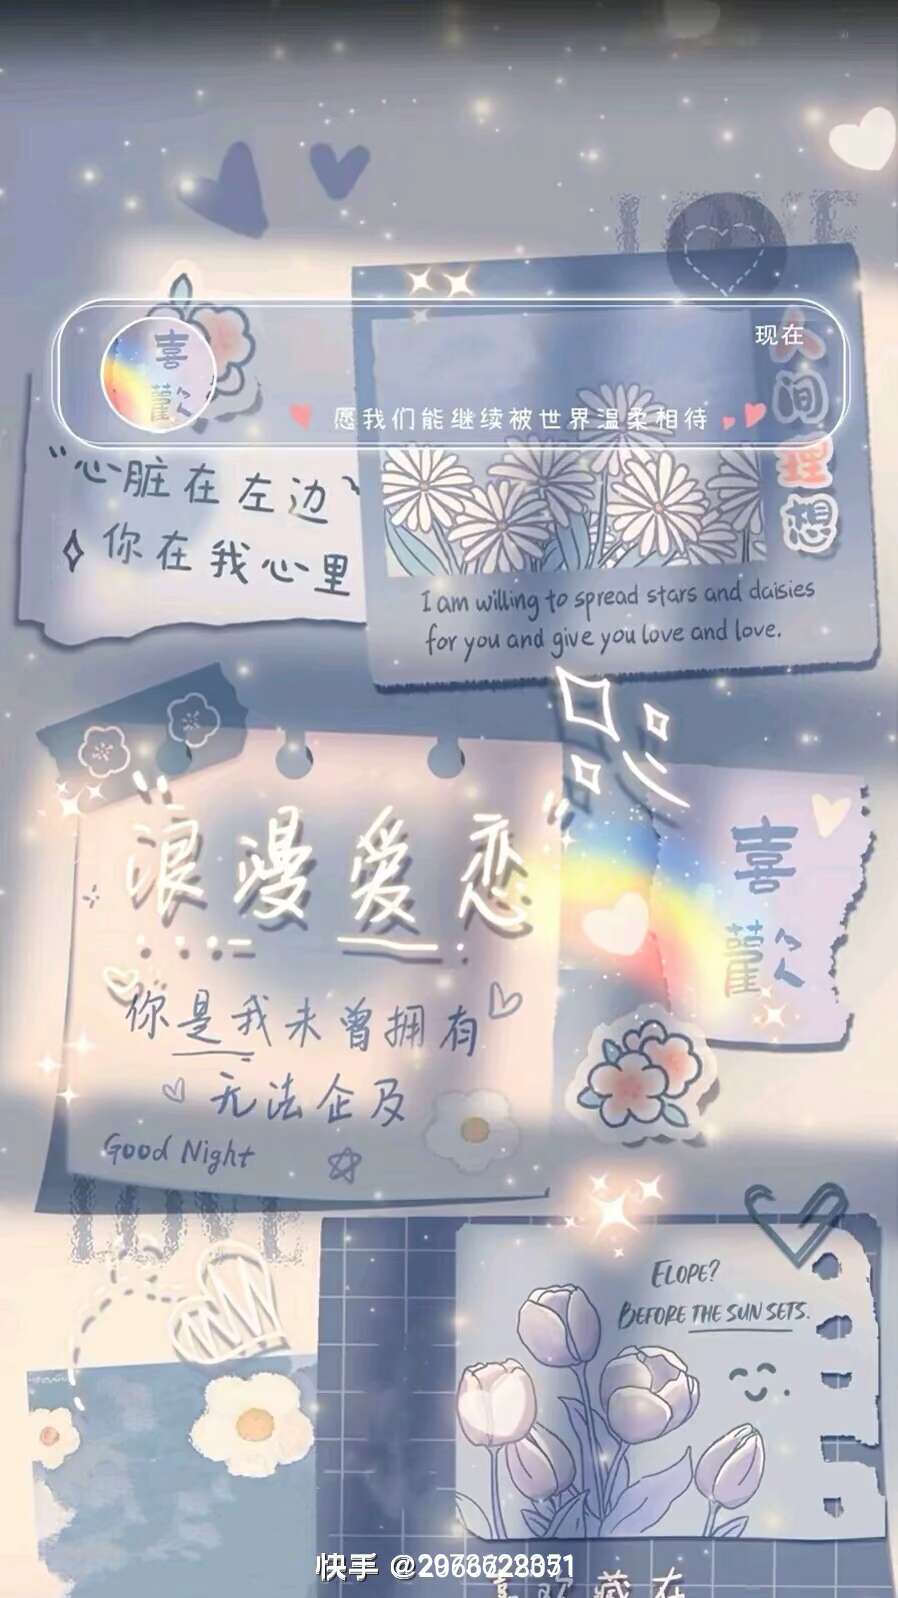 LOVE
现在
喜
歡
愿我们能继续被世界温柔相待
人间理想
"心脏在左边
你在我心里
I am willing to spread stars and daisies
for you and give you love and love.
"浪漫爱恋"
喜
歡
你是我未曾拥有
无法企及
Good Night
LOVE
ELOPE?
BEFORE THE SUN SETS.
快手
喜欢藏在